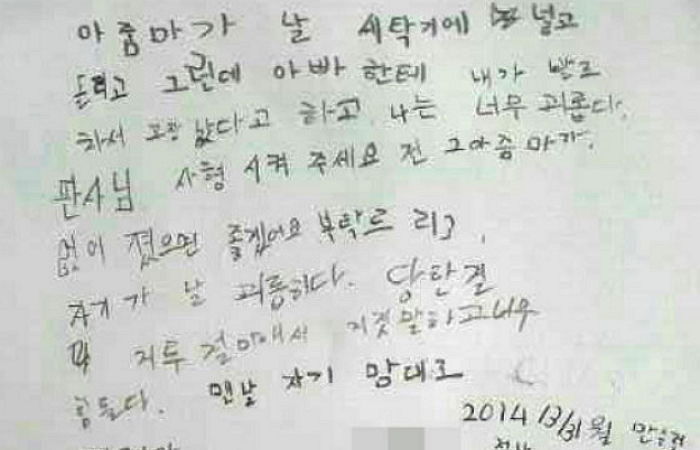 아줌마가 날 세탁기에 널고
돌리고 그런데 아빠 한테 내가 발로
차서 고장 났다고 하고 나는 너무 괴롭다.
판사님 사형 시켜 주세요 전 그아줌마가.
없어 졌으면 좋겠어요 부탁드 리고,
자기가 날 괴롭히다. 당한걸
꺼꾸로 엄마에서 거짓말하고 너무
힘들다. 맨날 자기 맘대로
2014 3/31월